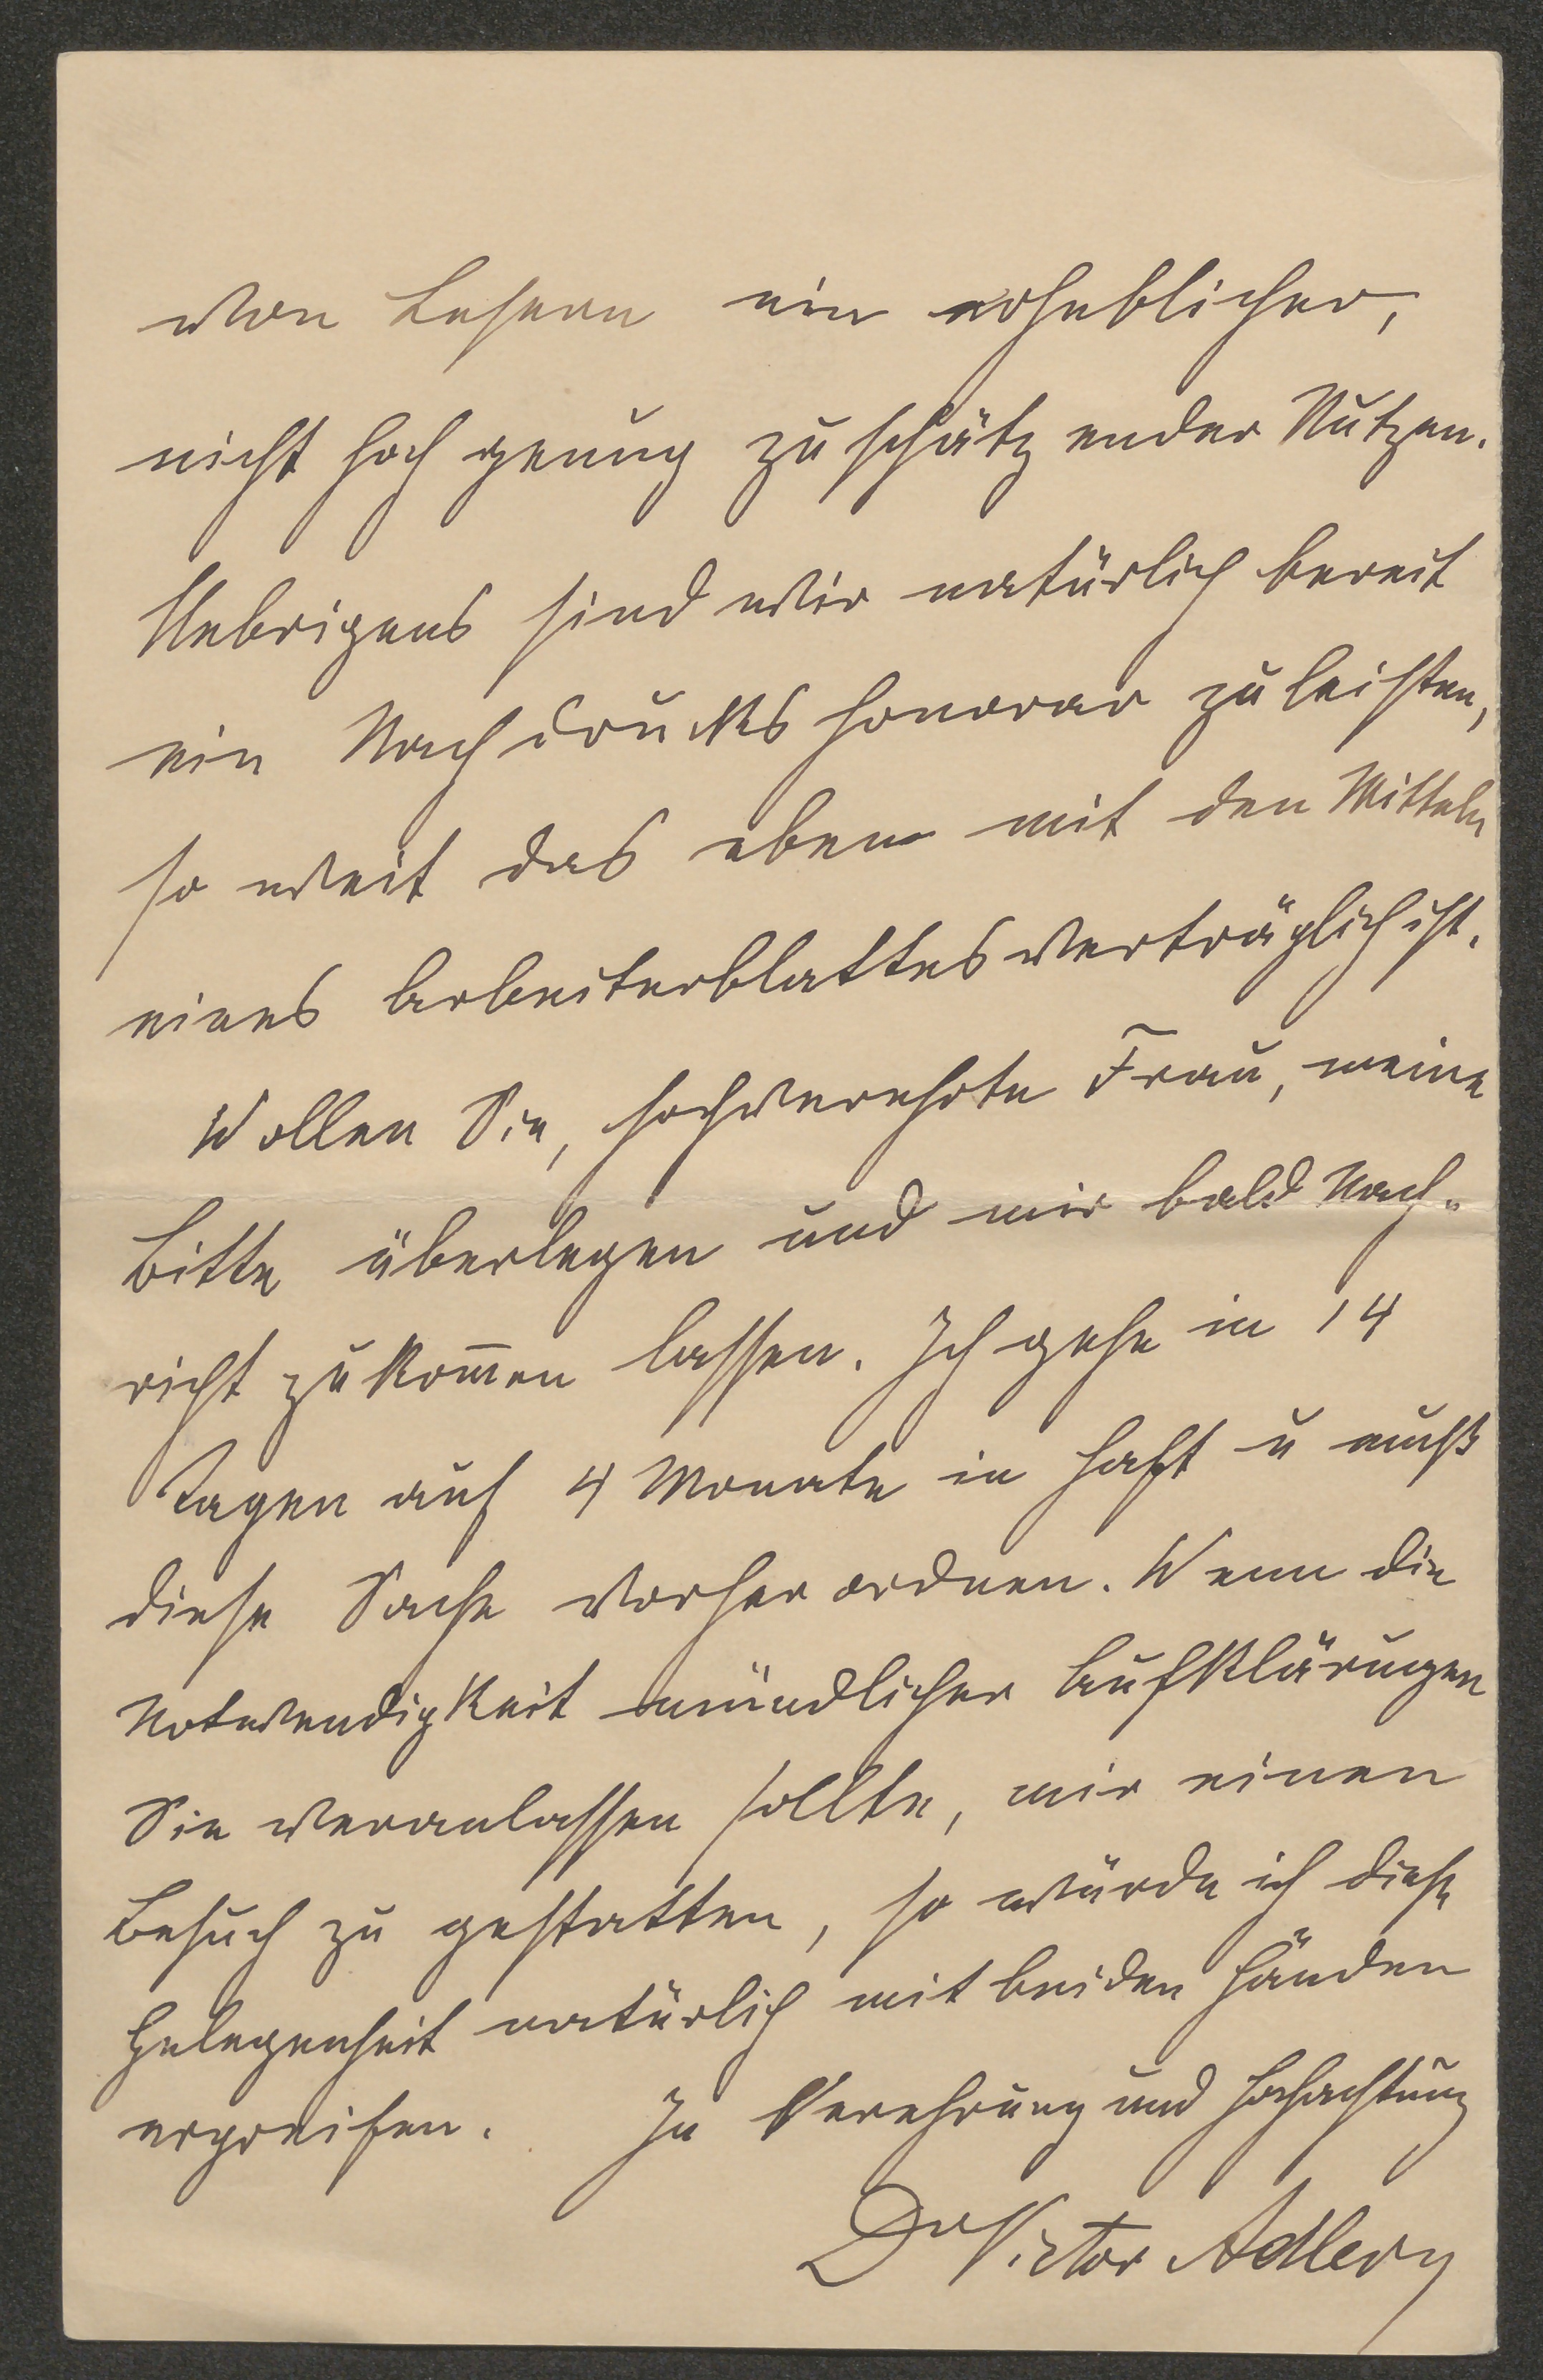 von Lesern ein erheblicher,
nicht hoch genug zu schätzender Nutzen.
Uebrigens sind wir natürlich bereit
ein Nachdruckshonorar zu leisten,
so weit das eben mit den Mitteln
eines Arbeiterblattes verträglich ist.
Wollen Sie, hochverehrte Frau, meine
Bitte überlegen und mir bald Nach-
richt zukom̄en lassen. Ich gehe in 14
Tagen auf 4 Monate in Haft u muß
diese Sache vorher ordnen. Wenn die
Notwendigkeit mündlicher Aufklärungen
Sie veranlassen sollte, mir einen
Besuch zu gestatten, so würde ich diese
Gelegenheit natürlich mit beiden Händen
ergreifen. In Verehrung und Hochachtung
Dr Victor Adler